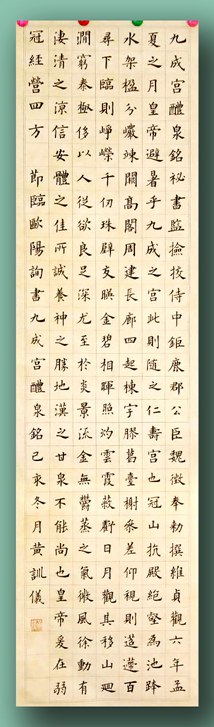 九成宮醴泉銘祕書監撿挍侍中鉅鹿郡公臣魏徵奉勑撰維貞觀六年孟
夏之月皇帝避暑乎九成之宮此則隨之仁壽宮也冠山抗殿絕壑為池跨
水架楹分巖竦闕高閣周建長廊四起棟宇膠葛臺榭參差仰視則迢遰百
尋下臨則崢嶸千仞珠璧交暎金碧相暉照灼雲霞蔽虧日月觀其移山迴
澗窮泰極侈以人從欲良足深尤至於炎景流金無鬱蒸之氣微風徐動有
淒清之涼信安體之佳所誠養神之勝地漢之甘泉不能尚也皇帝爰在弱
冠經營四方 節臨歐陽詢書九成宮醴泉銘己亥冬月黃訓儀